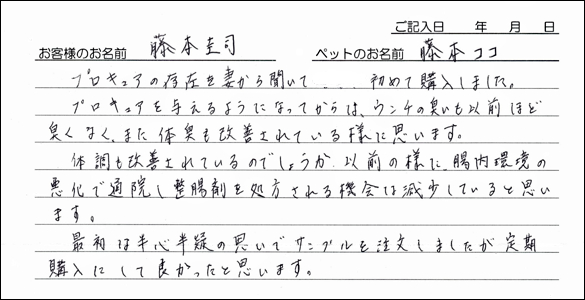 ご記入日　　年　　月　　日
お客様のお名前　藤本圭司　ペットのお名前　藤本ココ
プロキュアの存在を妻から聞いて....初めて購入しました。
プロキュアを与えるようになってからは、ウンチの臭いも以前ほど
臭くなく、また体臭も改善されている様に思います。
体調も改善されているのでしょうか、以前の様に、腸内環境の
悪化で通院し整腸剤を処方される機会は減少していると思い
ます。
最初は半心半疑の思いでサンプルを注文しましたが定期
購入にして良かったと思います。